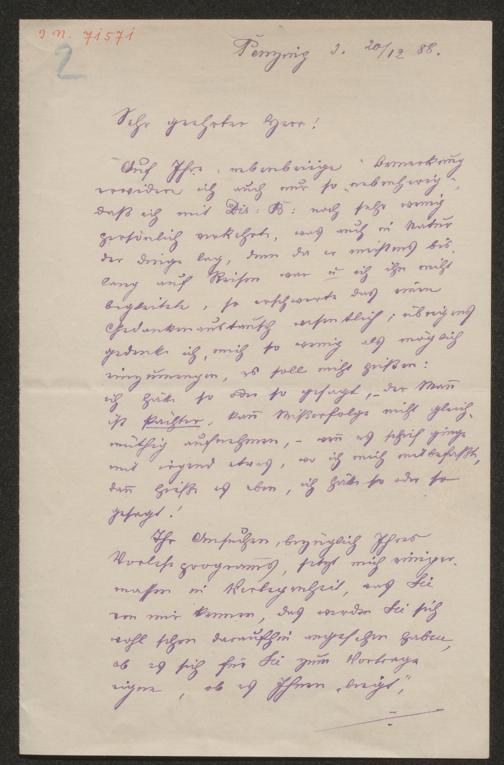 I. N. 71571
2
Penzing d. 20/12 88.
Sehr geehrter Herr!
Auf Ihre „nebenbeiige" Bemerkung
erwidere ich auch nur so „nebenherig",
daß ich mit Dir: B: noch sehr wenig
persönlich verkehrte, was auch in Natur
der Dinge lag, denn da er meistens bis-
lang auf Reisen war u ich ihn nicht
begleitete, so erschwerte das einen
Gedankenaustausch wesentlich; übrigens
gedenke ich, mich so wenig als möglich
einzumengen, es soll nicht heißen:
ich hätte so oder so gesagt, „der Mann
ist Pächter, kann Mißerfolge nicht gleich-
müthig aufnehmen, – wenn es schief ginge
mit irgend etwas, wo ich mich mitbefaßte,
dann hieße es eben, ich hätte so oder so
gesagt!
Ihr Ansuchen, bezüglich Ihres
Vorleseprogramms, setzt mich einiger-
massen in Verlegenheit, was Sie
von mir kennen, das werden Sie sich
wohl schon daraufhin angesehen haben,
ob es sich für Sie zum Vortrage
eigne, ob es Ihnen „liegt",